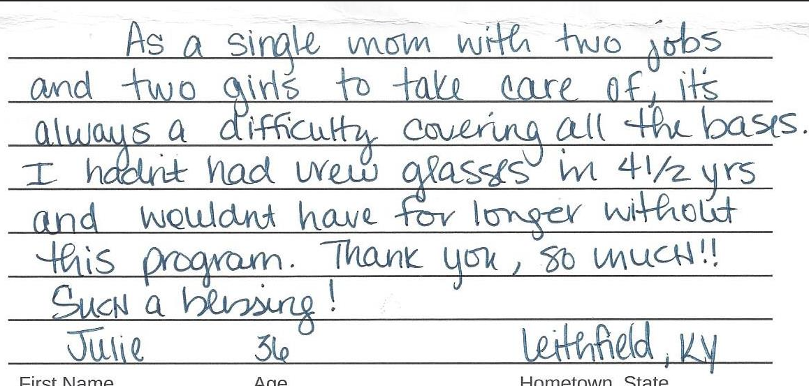 As a single mom with two jobs
and two girls to take care of, it's
always a difficulty covering all the bases.
I hadn't had new glasses in 4 1/2 yrs
and wouldnt have for longer without
this program. Thank you, so much!!
Such a blessing!
Julie 36 Leithfield, KY
First Name Age Hometown, State